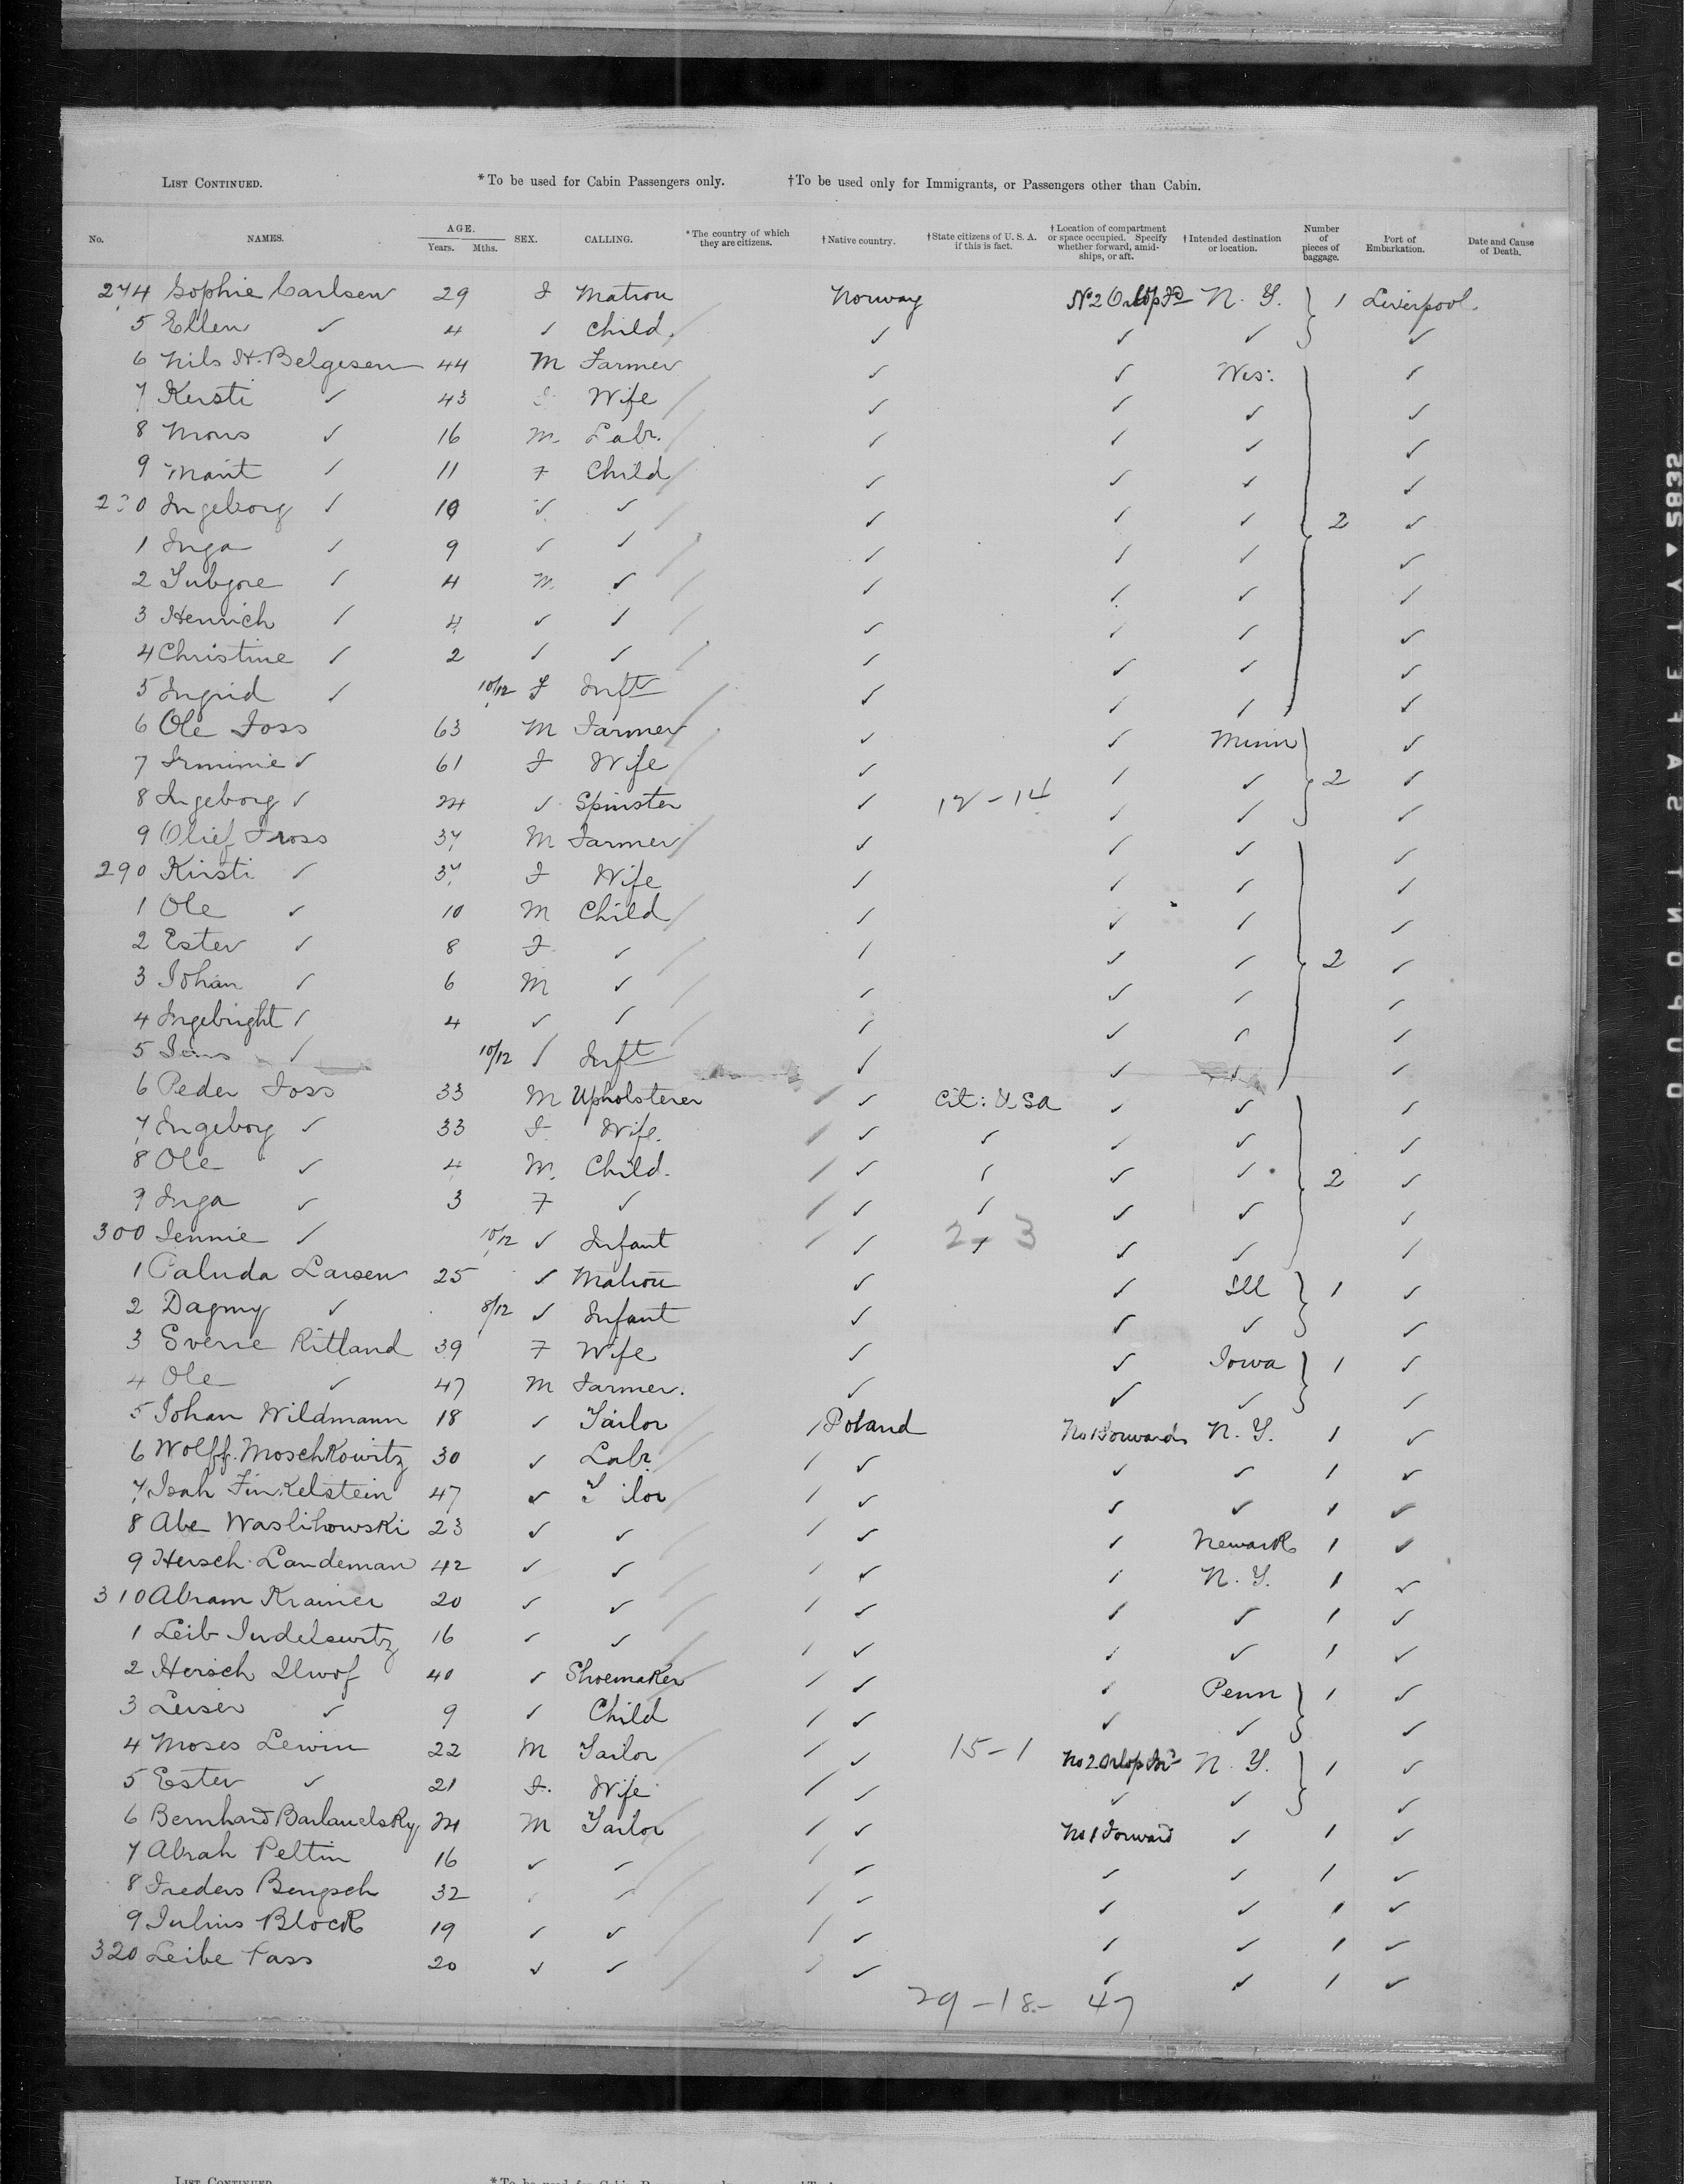 LIST CONTINUED. *To be used for Cabin Passengers only. †To be used only for Immigrants, or Passengers other than Cabin.
No. NAMES. AGE. Years. Mths. SEX. CALLING. *The country of which they are citizens. †Native country. †State citizens of U. S. A. if this is fact. †Location of compartment or space occupied. Specify whether forward, amidships, or aft. †Intended destination or location. Number of pieces of baggage. Port of Embarkation. Date and Cause of Death.
274 Sophie Carlsen 29 F Matron Norway No 2 Orlop Fd N. Y. 1 Liverpool.
5 Ellen ✓ 4 ✓ Child ✓ ✓ ✓ ✓
6 Nils H. Belgesen 44 M Farmer ✓ ✓ Wis: ✓
7 Kersti ✓ 43 F Wife ✓ ✓ ✓ ✓
8 Mons ✓ 16 M. Labr. ✓ ✓ ✓ ✓
9 Marit ✓ 11 F Child ✓ ✓ ✓ ✓
280 Ingeborg ✓ 10 ✓ ✓ ✓ ✓ ✓ 2 ✓
1 Inga ✓ 9 ✓ ✓ ✓ ✓ ✓ ✓
2 ✓ 4 M. ✓ ✓ ✓ ✓ ✓
3 Henrich ✓ 4 ✓ ✓ ✓ ✓ ✓ ✓
4 Christine ✓ 2 ✓ ✓ ✓ ✓ ✓ ✓
5 Ingrid ✓ 10/12 F Inft ✓ ✓ ✓ ✓
6 Ole Foss 63 M Farmer ✓ ✓ Minn ✓
7 ✓ 61 F Wife ✓ ✓ ✓ 2 ✓
8 Ingeborg ✓ 24 ✓ Spinster ✓ 12-14 ✓ ✓ ✓
9 Olief Fross 37 M Farmer ✓ ✓ ✓ ✓
290 Kirsti ✓ 37 F Wife ✓ ✓ ✓ ✓
1 Ole ✓ 10 M Child ✓ ✓ ✓ ✓
2 Ester ✓ 8 F ✓ ✓ ✓ ✓ 2 ✓
3 Johan ✓ 6 M ✓ ✓ ✓ ✓ ✓
4 Ingebright ✓ 4 ✓ ✓ ✓ ✓ ✓ ✓
5 Jens ✓ 10/12 ✓ Inft ✓ ✓ ✓ ✓
6 Peder Foss 33 M Upholsterer ✓ Cit: USA ✓ ✓ ✓
7 Ingeborg ✓ 33 F Wife. ✓ ✓ ✓ ✓ ✓
8 Ole ✓ 4 M. Child. ✓ ✓ ✓ ✓ 2 ✓
9 Inga ✓ 3 F ✓ ✓ ✓ ✓ ✓ ✓
300 Jennie ✓ 10/12 ✓ Infant ✓ 2-3 ✓ ✓ ✓
1 Larsen 25 ✓ Matron ✓ ✓ Ill 1 ✓
2 Dagmy ✓ 8/12 ✓ Infant ✓ ✓ ✓ ✓
3 Sverre Ritland 39 F Wife ✓ ✓ Iowa 1 ✓
4 Ole ✓ 47 M Farmer. ✓ ✓ ✓ ✓
5 Johan Wildmann 18 ✓ Tailor Poland No 1 Forward N. Y. 1 ✓
6 Wolff Moschkowitz 30 ✓ Labr. ✓ ✓ ✓ 1 ✓
7 Isah Finkelstein 47 ✓ Tailor ✓ ✓ ✓ 1 ✓
8 Abe Waslihowski 23 ✓ ✓ ✓ ✓ Newark 1 ✓
9 Hersch Landeman 42 ✓ ✓ ✓ ✓ N. Y. 1 ✓
310 Abram Krainer 20 ✓ ✓ ✓ ✓ ✓ 1 ✓
1 Leib 16 ✓ ✓ ✓ ✓ ✓ 1 ✓
2 Hersch Ilwof 40 ✓ Shoemaker ✓ ✓ Penn 1 ✓
3 Leiser ✓ 9 ✓ Child ✓ ✓ ✓ ✓
4 Moses Lewin 22 M Tailor ✓ 15-1 No 2 Orlop Fd N. Y. 1 ✓
5 Ester ✓ 21 F. Wife ✓ ✓ ✓ ✓
6 Bernhard 24 M Tailor ✓ No 1 Forward ✓ 1 ✓
7 Abrah Peltin 16 ✓ ✓ ✓ ✓ ✓ 1 ✓
8 32 ✓ ✓ ✓ ✓ 1 ✓
9 Julius Block 19 ✓ ✓ ✓ ✓ ✓ 1 ✓
320 Leibe Fass 20 ✓ ✓ ✓ ✓ ✓ 1 ✓
29-18- 47
2382 ▲ YTEFAS TNOPUD
LIST CONTINUED